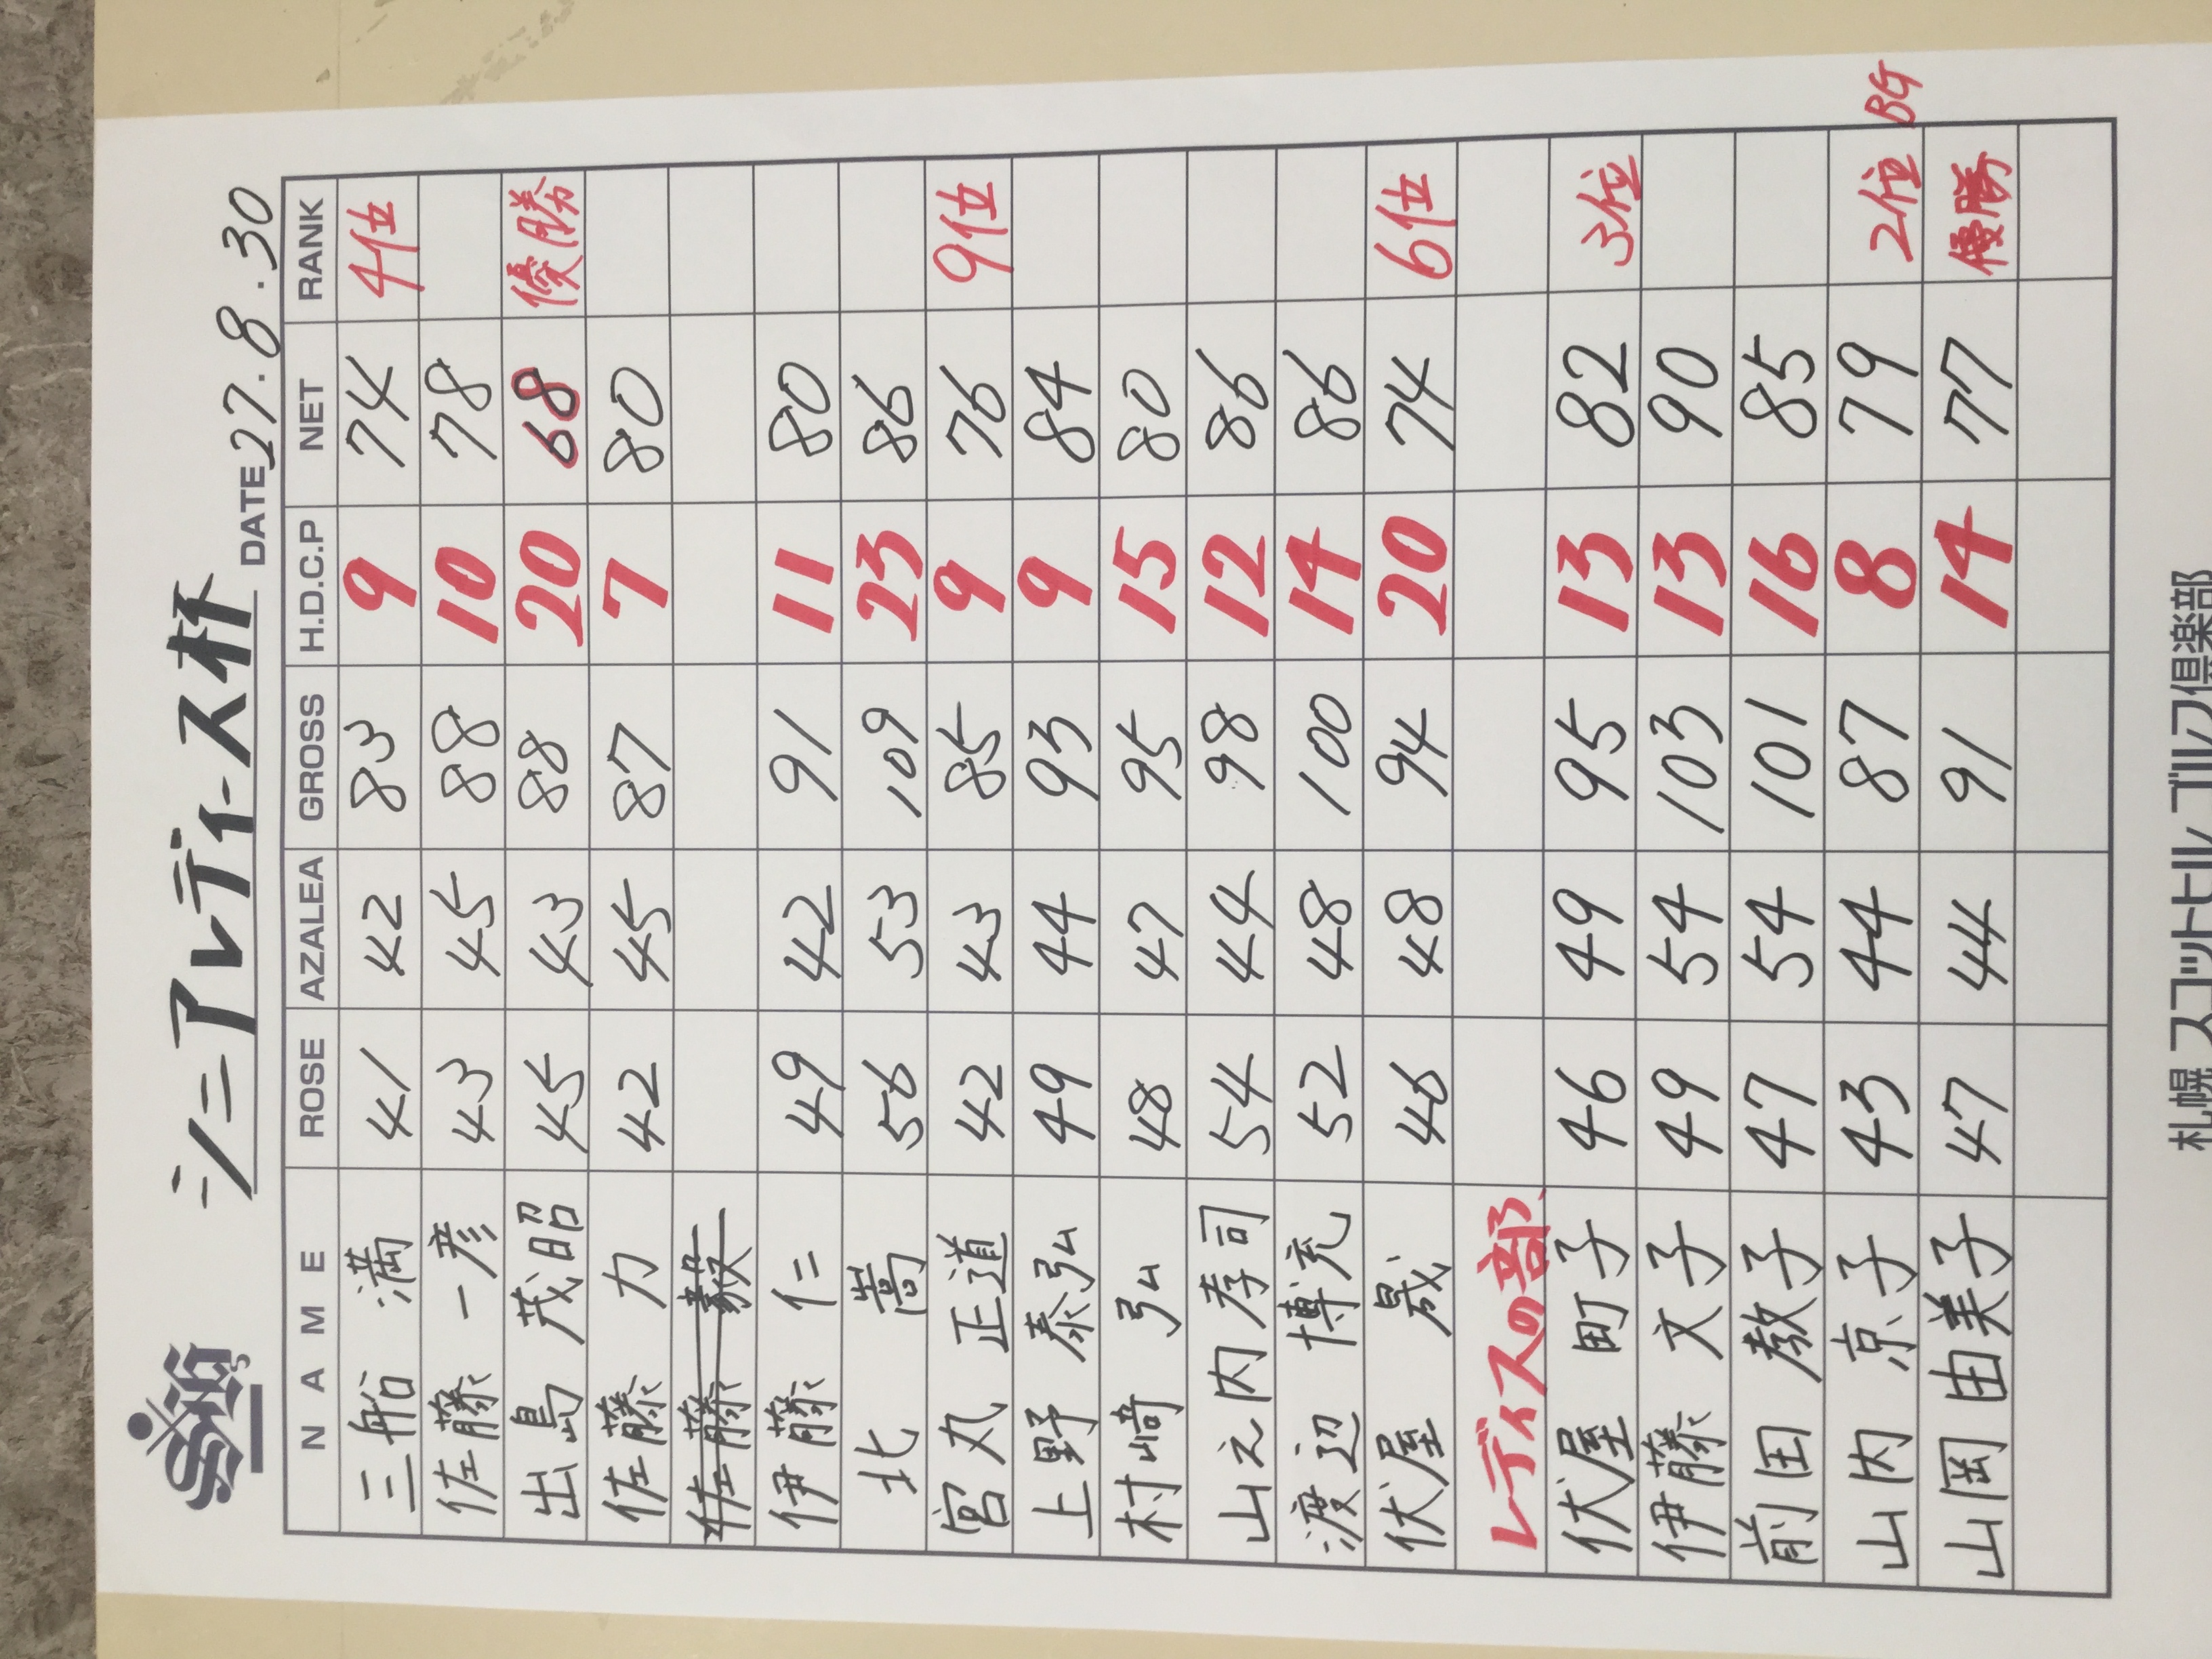 シニアレディース杯
DATE 27.8.30
NAME ROSE AZALEA GROSS H.D.C.P NET RANK
三船 満 41 42 83 9 74 4位
佐藤 一彦 43 45 88 10 78
出島 茂昭 45 43 88 20 68 優勝
佐藤 力 42 45 87 7 80
佐藤 毅
伊藤 仁 49 42 91 11 80
北 嵩 56 53 109 23 86
宮丸 正道 42 43 85 9 76 9位
上野 泰弘 49 44 93 9 84
村崎 弘 48 47 95 15 80
山之内 孝司 54 44 98 12 86
渡辺 博充 52 48 100 14 86
伏屋 晟 46 48 94 20 74 6位
レディスの部
伏屋 町子 46 49 95 13 82 3位
伊藤 文子 49 54 103 13 90
前田 教子 47 54 101 16 85
山内 京子 43 44 87 8 79 2位 BG
山岡 由美子 47 44 91 14 77 優勝
札幌スコットヒルゴルフ倶楽部